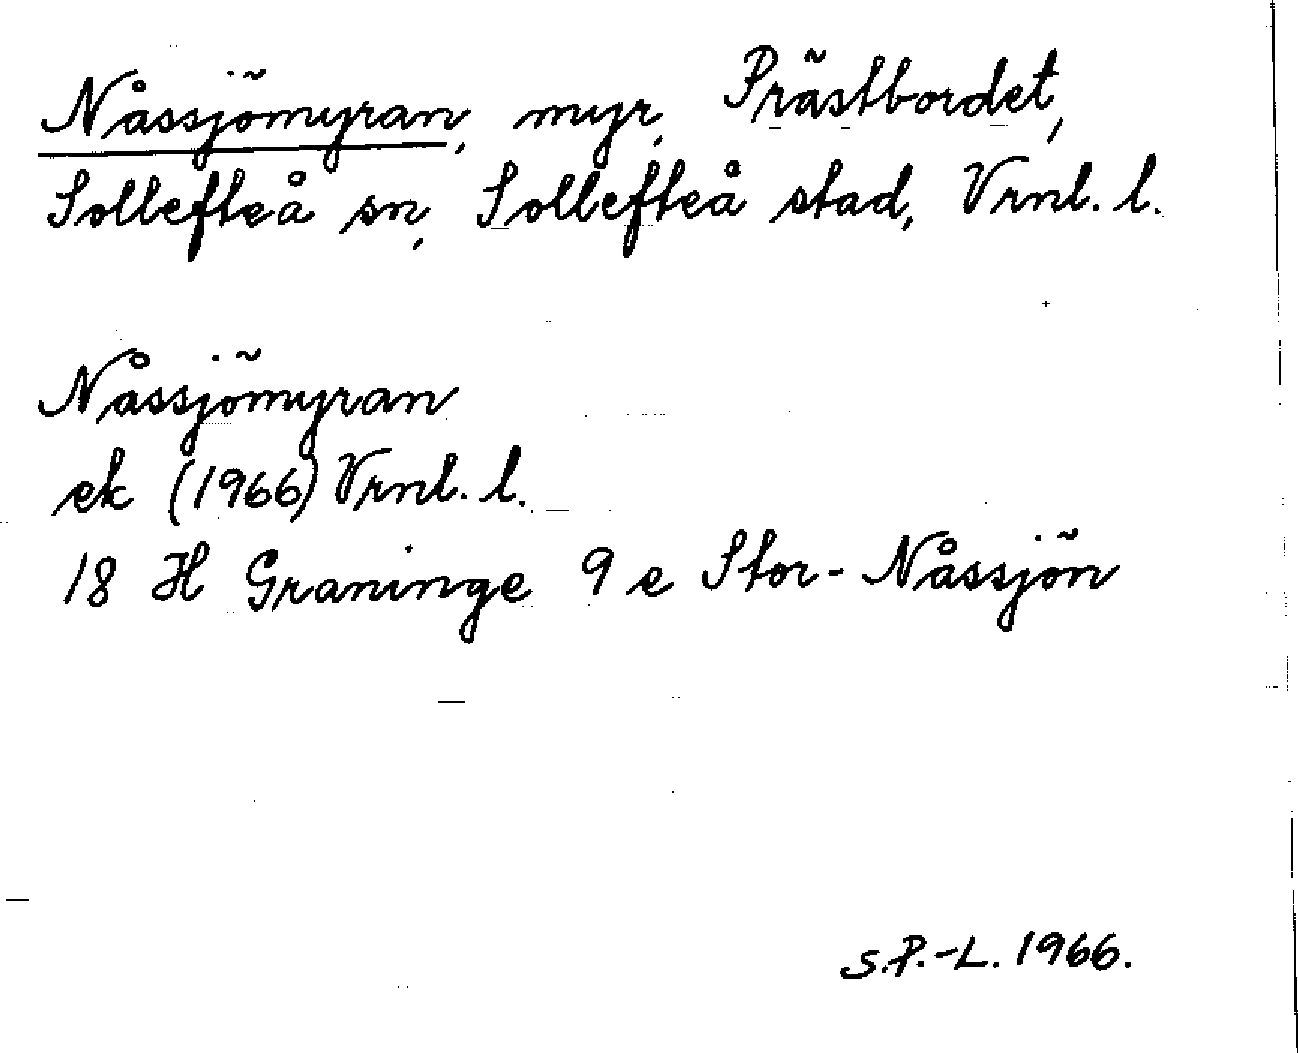 Nåssjömyran, myr, Prästbordet,
Sollefteå sn, Sollefteå stad, Vrnl. l.
Nåssjömyran
ek (1966) Vrnl. l.
18 H Graninge 9 e Stor-Nåssjön
S.P.-L. 1966.